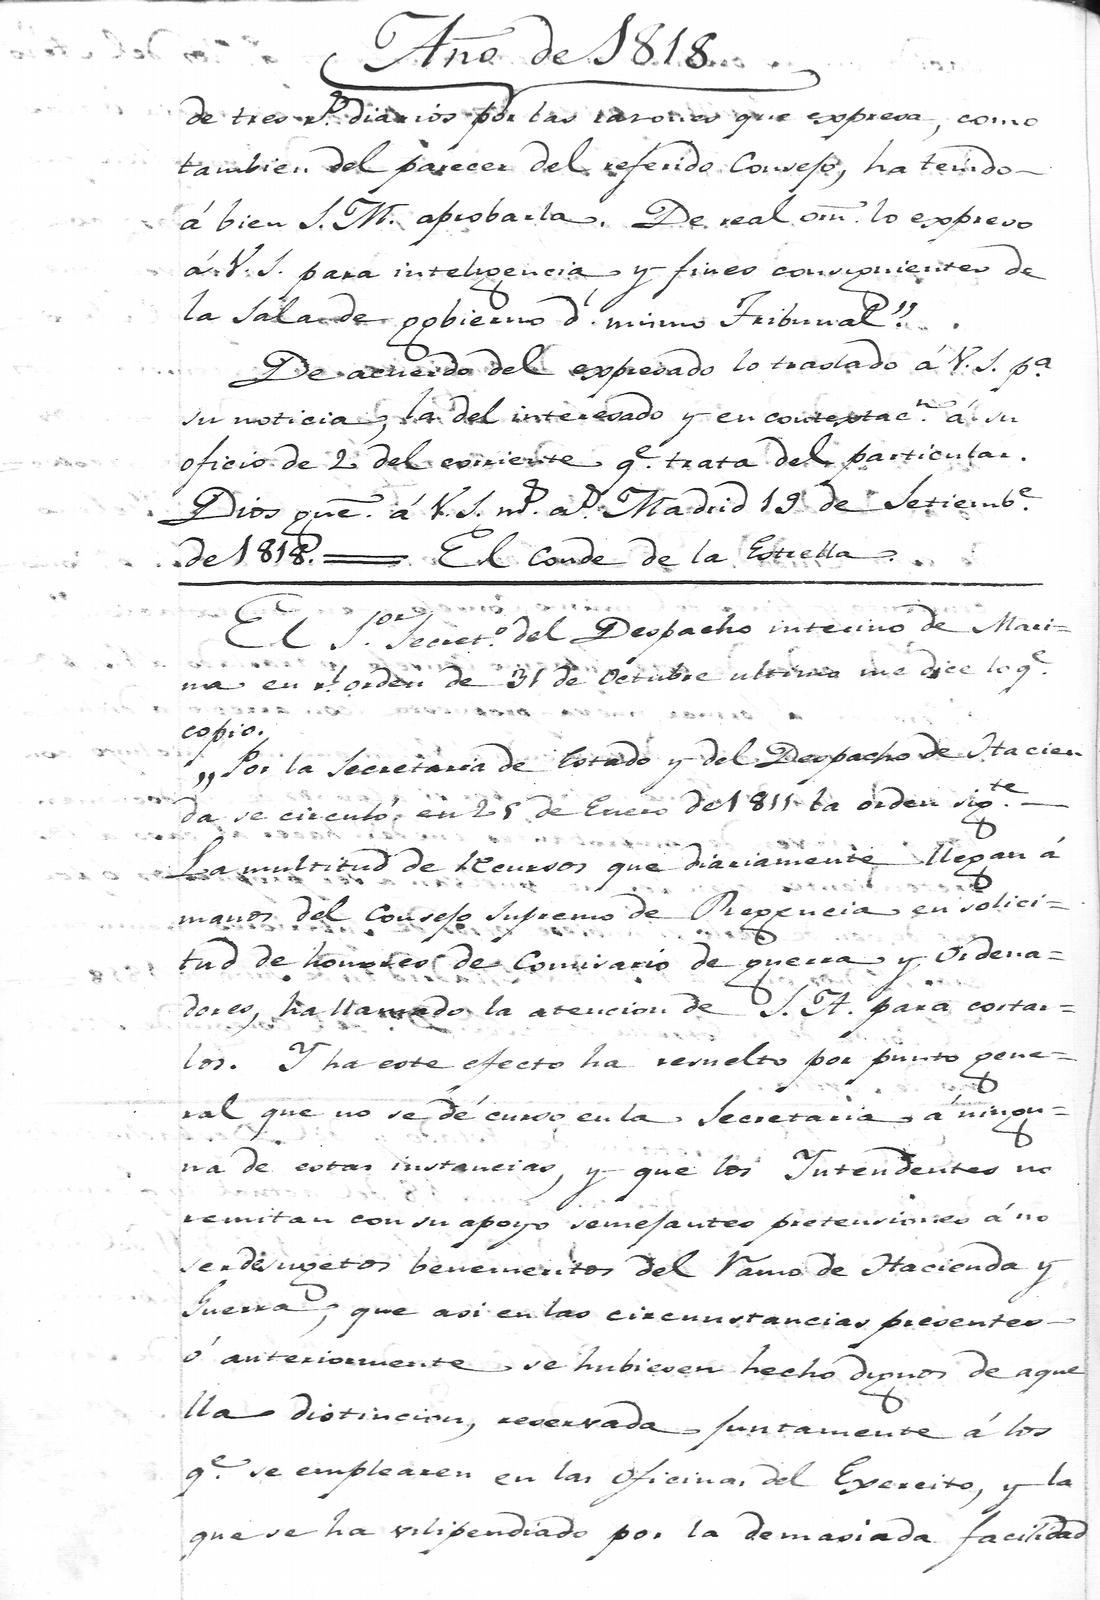 Año de 1818
de tres rs. diarios por las razones que expresa, como
tambien del parecer del referido Consejo, ha tenido
á bien S. M. aprobarla. De real orn. lo expreso
á V. S. para inteligencia, y fines consiguientes de
la Sala de gobierno d. mismo Tribunal"
De acuerdo del expresado lo traslado á V. S. pa
su noticia, la del interesado y en contextacn. á su
oficio de 2 del corriente qe. trata del particular.
Dios gue. á V. S. ms. as. Madrid 19 de Setiembe.
de 1818. = El Conde de la Estrella.
El Sor. Secreto. del Despacho interino de Mari=
na en rl. orden de 31 de Octubre ultimo me dice lo qe.
copio.
„Por la Secretaria de Estado y del Despacho de Hacien
da se circuló en 25 de Enero de 1811 la orden sigte.
La multitud de Recursos que diariamente llegan á
manos del Consejo Supremo de Regencia en solici=
tud de honores de Comisario de guerra y Ordena=
dores, ha llamado la atencion de S. A. para cortar=
los. Y ha este efecto ha resuelto por punto gene=
ral que no se dé curso en la Secretaria á ningu=
na de estas instancias, y que los Intendentes no
remitan con su apoyo semejantes pretensiones á no
ser de sugetos benemeritos del Ramo de Hacienda y
Guerra, que asi en las circunstancias presentes
ó anteriormente se hubiesen hecho dignos de aque
lla distincion, reservada juntamente á los
qe. se emplearen en las Oficinas del Exercito, y la
que se ha vilipendiado por la demasiada facilidad